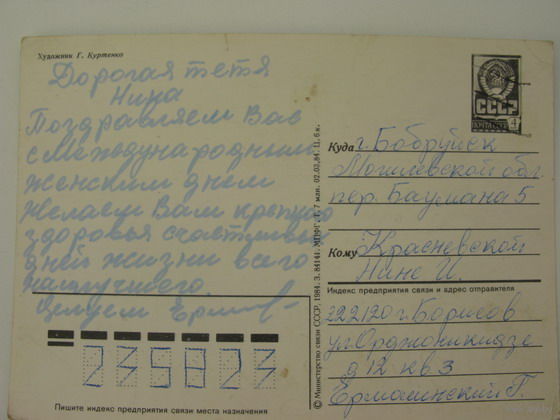 Художник Г. Куртенко
Дорогая тётя
Нина
Поздравляем Вас
с Международным
женским днем
Желаем Вам крепкого
здоровья счастливых
дней жизни всего
наилучшего
Целуем
СССР
ПОЧТА
4
Куда г. Бобруйск
Могилевской обл.
пер. Баумана 5
Кому Красневской
Нине И.
Индекс предприятия связи и адрес отправителя
222120 г. Борисов
ул Орджоникидзе
д 12 кв 3
Ермолинский Г.
© Министерство связи СССР, 1984. З. 84141. МПФГ. Г. 7 мая. 02.03.84. 11, 6 к.
235823
Пишите индекс предприятия связи места назначения